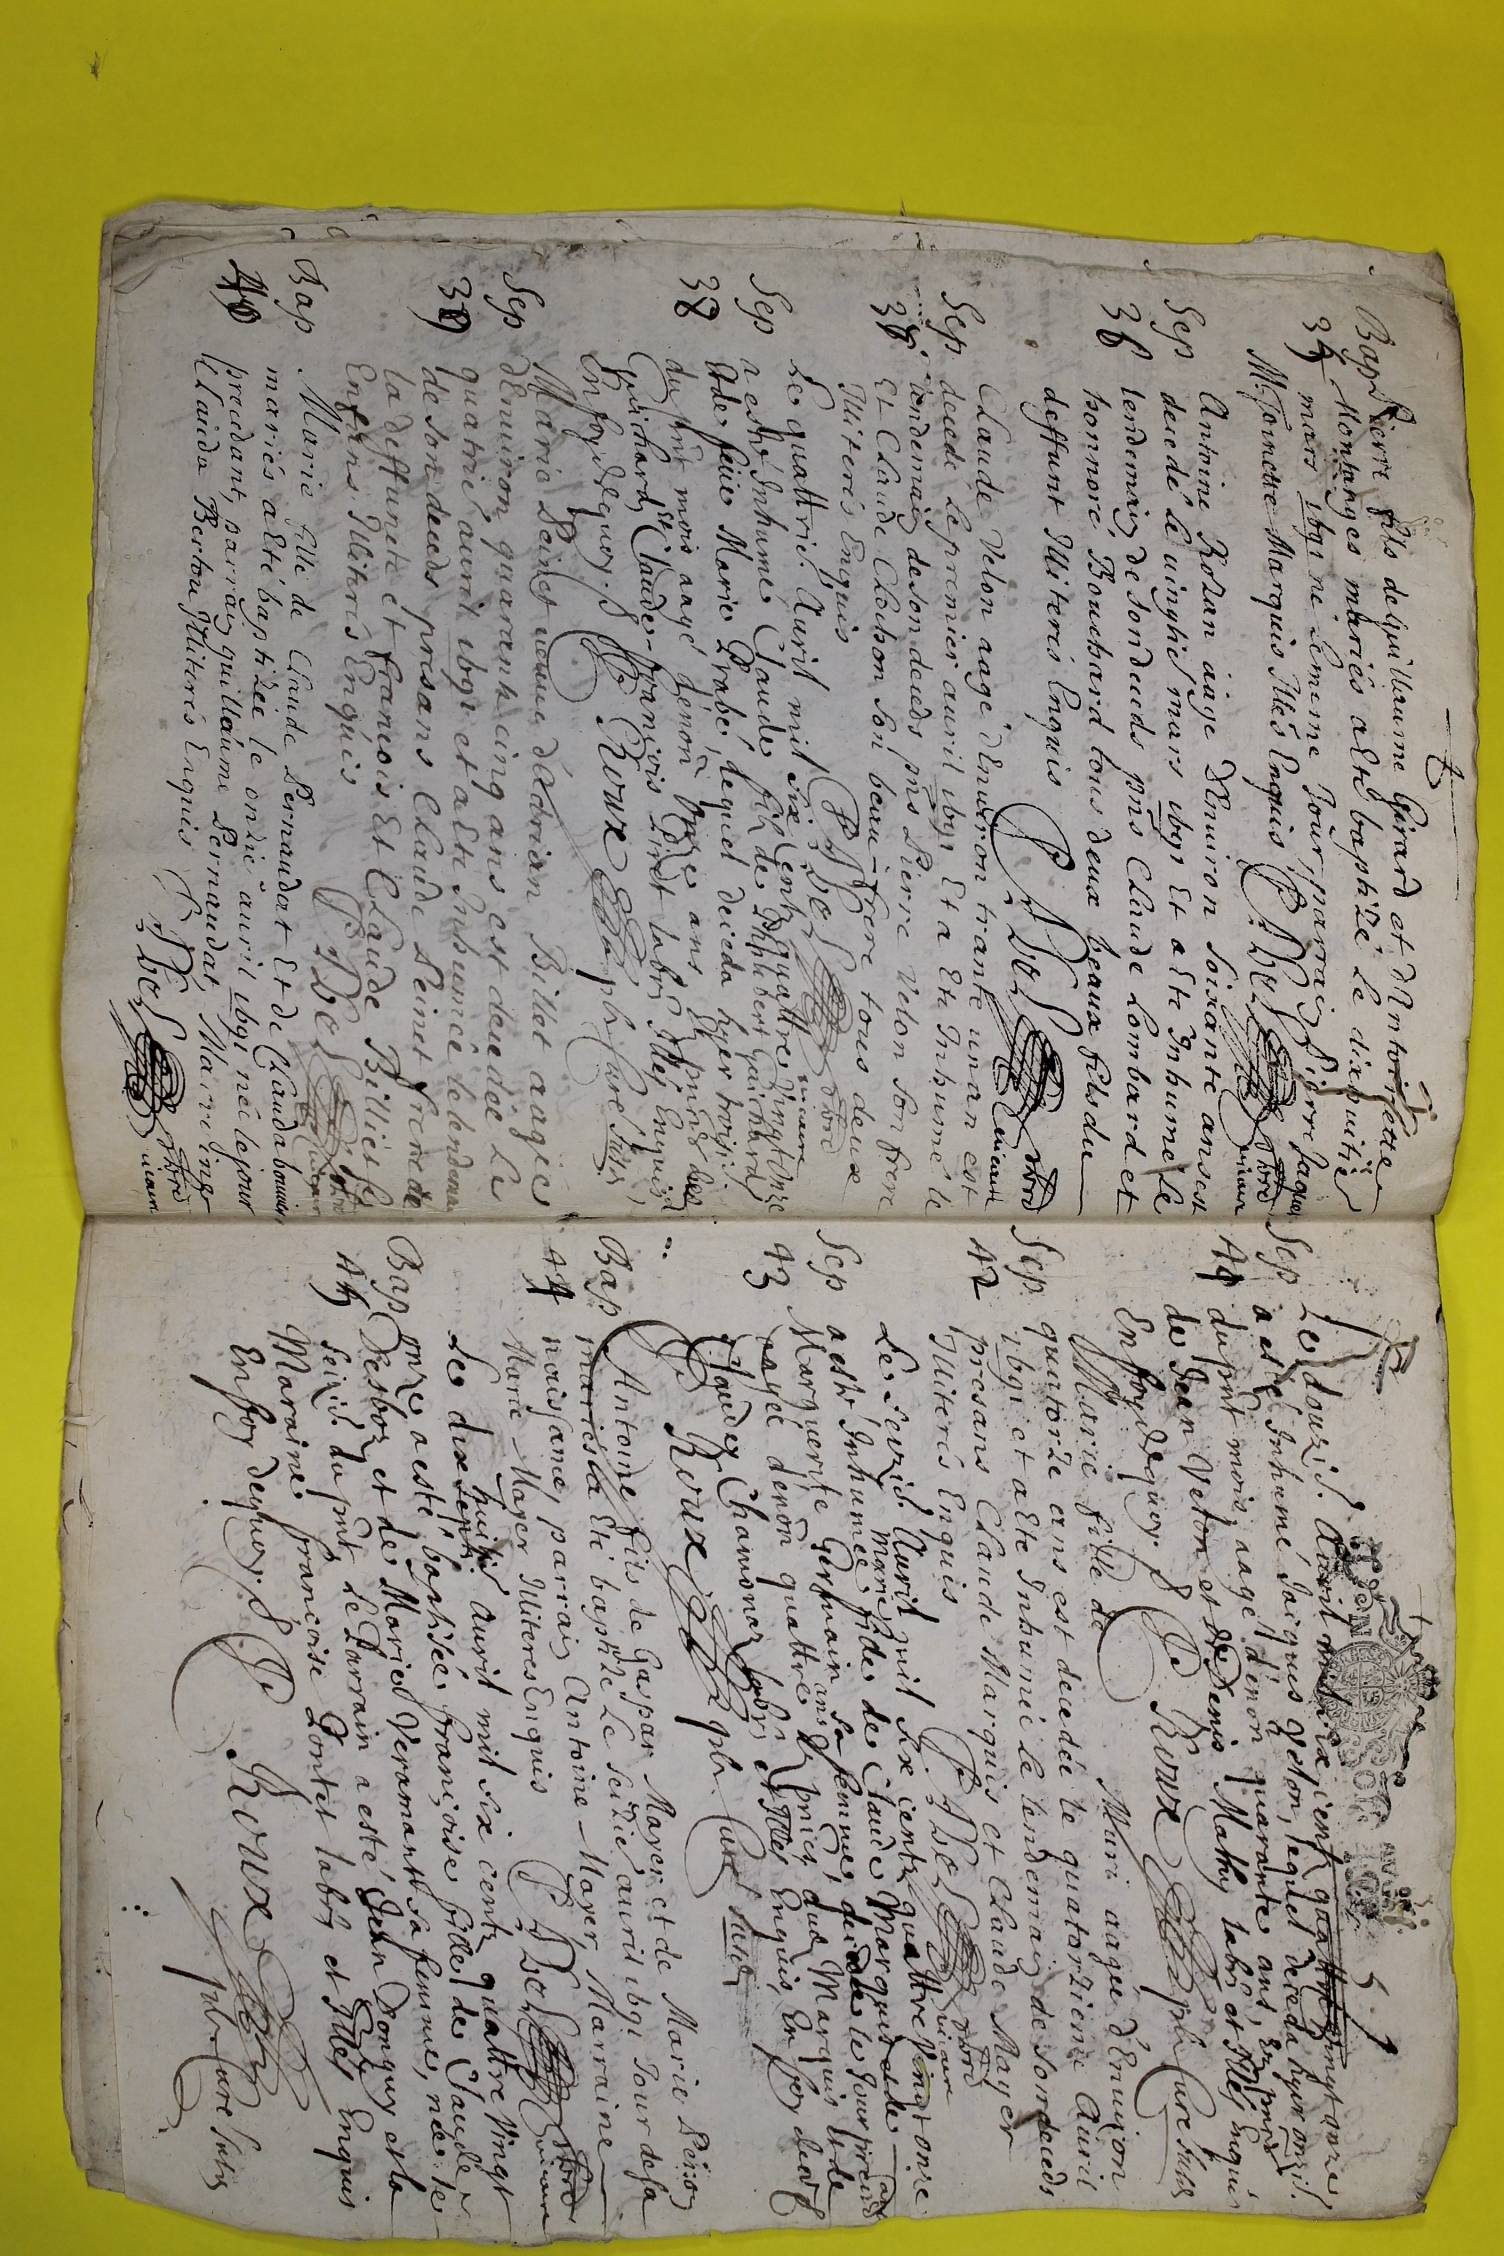 Bap Pierre fils de guillaume Girard et d'Antoinette
35 Montanges mariés a Eté baptizé le dixhuitiè
mars 1691 né le mesme Jour, parrain Pierre Jaques
M. Toinette Marquis Illés Enquis P
vicaire
Antoine Rozan âagé d'Enuiron soixante ans est
Sep decedé le uingtiè mars 1691 Et a Eté Inhumé le
36 lendemain de son deceds pns Claude Lombard et
honnoré Bouchard tous deux beaux fils du
deffunt Illiterés Enquis P
vicaire
Claude Velon aagé d'Enuiron trante un an est
Sep decedé le premier auril 1691 Et a Eté Inhumé le
lendemain de son deceds pns Pierre Velon son frere
Et Claude Clochon son beau-frere tous deux
Illiterés Enquis P
vicaire
Le quattrie. Auril mil six centz quattre Vingt onze
Sep a esté Inhumé Claude filz de Philibert guichard
38 et de feue Marie Trabé, lequel deceda hyer troisie.
du pnt mois aagé d'enon onze ans En pnce des
guichard et Claude-françois Piret labr. Illés Enquis
En foy dequoy. J Roux pbr Curé susd.
Marie Peinet ueuue d'Adrian Billet aagée
Sep d'Enuiron quarante cinq ans est decedée le
39 quatriè auril 1691 et a Eté Inhumée le lendemain
de son deceds presans Claude Peinet frere de
la deffuncte et francois Et Claude Billiet ses
Enfans Illiterés Enquis P
Bap Marie fille de Claude Pernaudat Et de Clauda bouuier
40 mariés a Eté baptizée le onziè auril 1691 née le jour
precedant, parrain guillaume Pernaudat, Marreine
Clauda Bertou Illiterés Enquis P
vicaire
Le douzie. Auril mil six centz quattre Vingt onze
Sep a esté Inhumé Jacques Velon, lequel deceda hyer onzie.
41 du pnt mois, aagé d'enon quarante ans, En pnce
de Jean Velon et de Denis Mathy labr. et Illés Enquis
En foy dequoy. J Roux pbr Curé susd.
Marie fille de Muri aagée d'Enuiron
Sep quatorze ans est decedée le quatorzieme Auril
42 1691 et a Eté Inhumée le lendemain de son deceds
presans Claude Marquis et Claude Mayer
Illiterés Enquis P
vicaire
Le seizie. Auril mil six centz quattre Vingt onze
Sep a esté Inhumée Marie fille de Claude Marquis et de
43 Marguerite Germain sa femme, decedée le Jour preced.
aagée d'enon quattre ans En pnce dud. Marquis Et de
Claude Chamonaz labr. et Illés Enquis, En foy dequoy
J Roux pbr Curé susd.
Bap Antoine fils de Gaspar Mayer et de Marie
44 mariés a Eté baptizé le seiziè auril 1691 Jour de sa
naissance, parrain Antoine Mayer, Marraine
Marie Mayer Illiteres Enquis P
vicaire
Le dixhuitie. auril mil six centz quattre Vingt
Bap onze a esté baptisée françoise fille de Claude
45 Desboz et de Marie Veramant sa femme, née le
seizie. du pnt. Le Parrain a esté Jean Donguy et la
Maraine françoise Pontet labr. et Illés Enquis
En foy dequoy. J Roux pbr Curé susd.